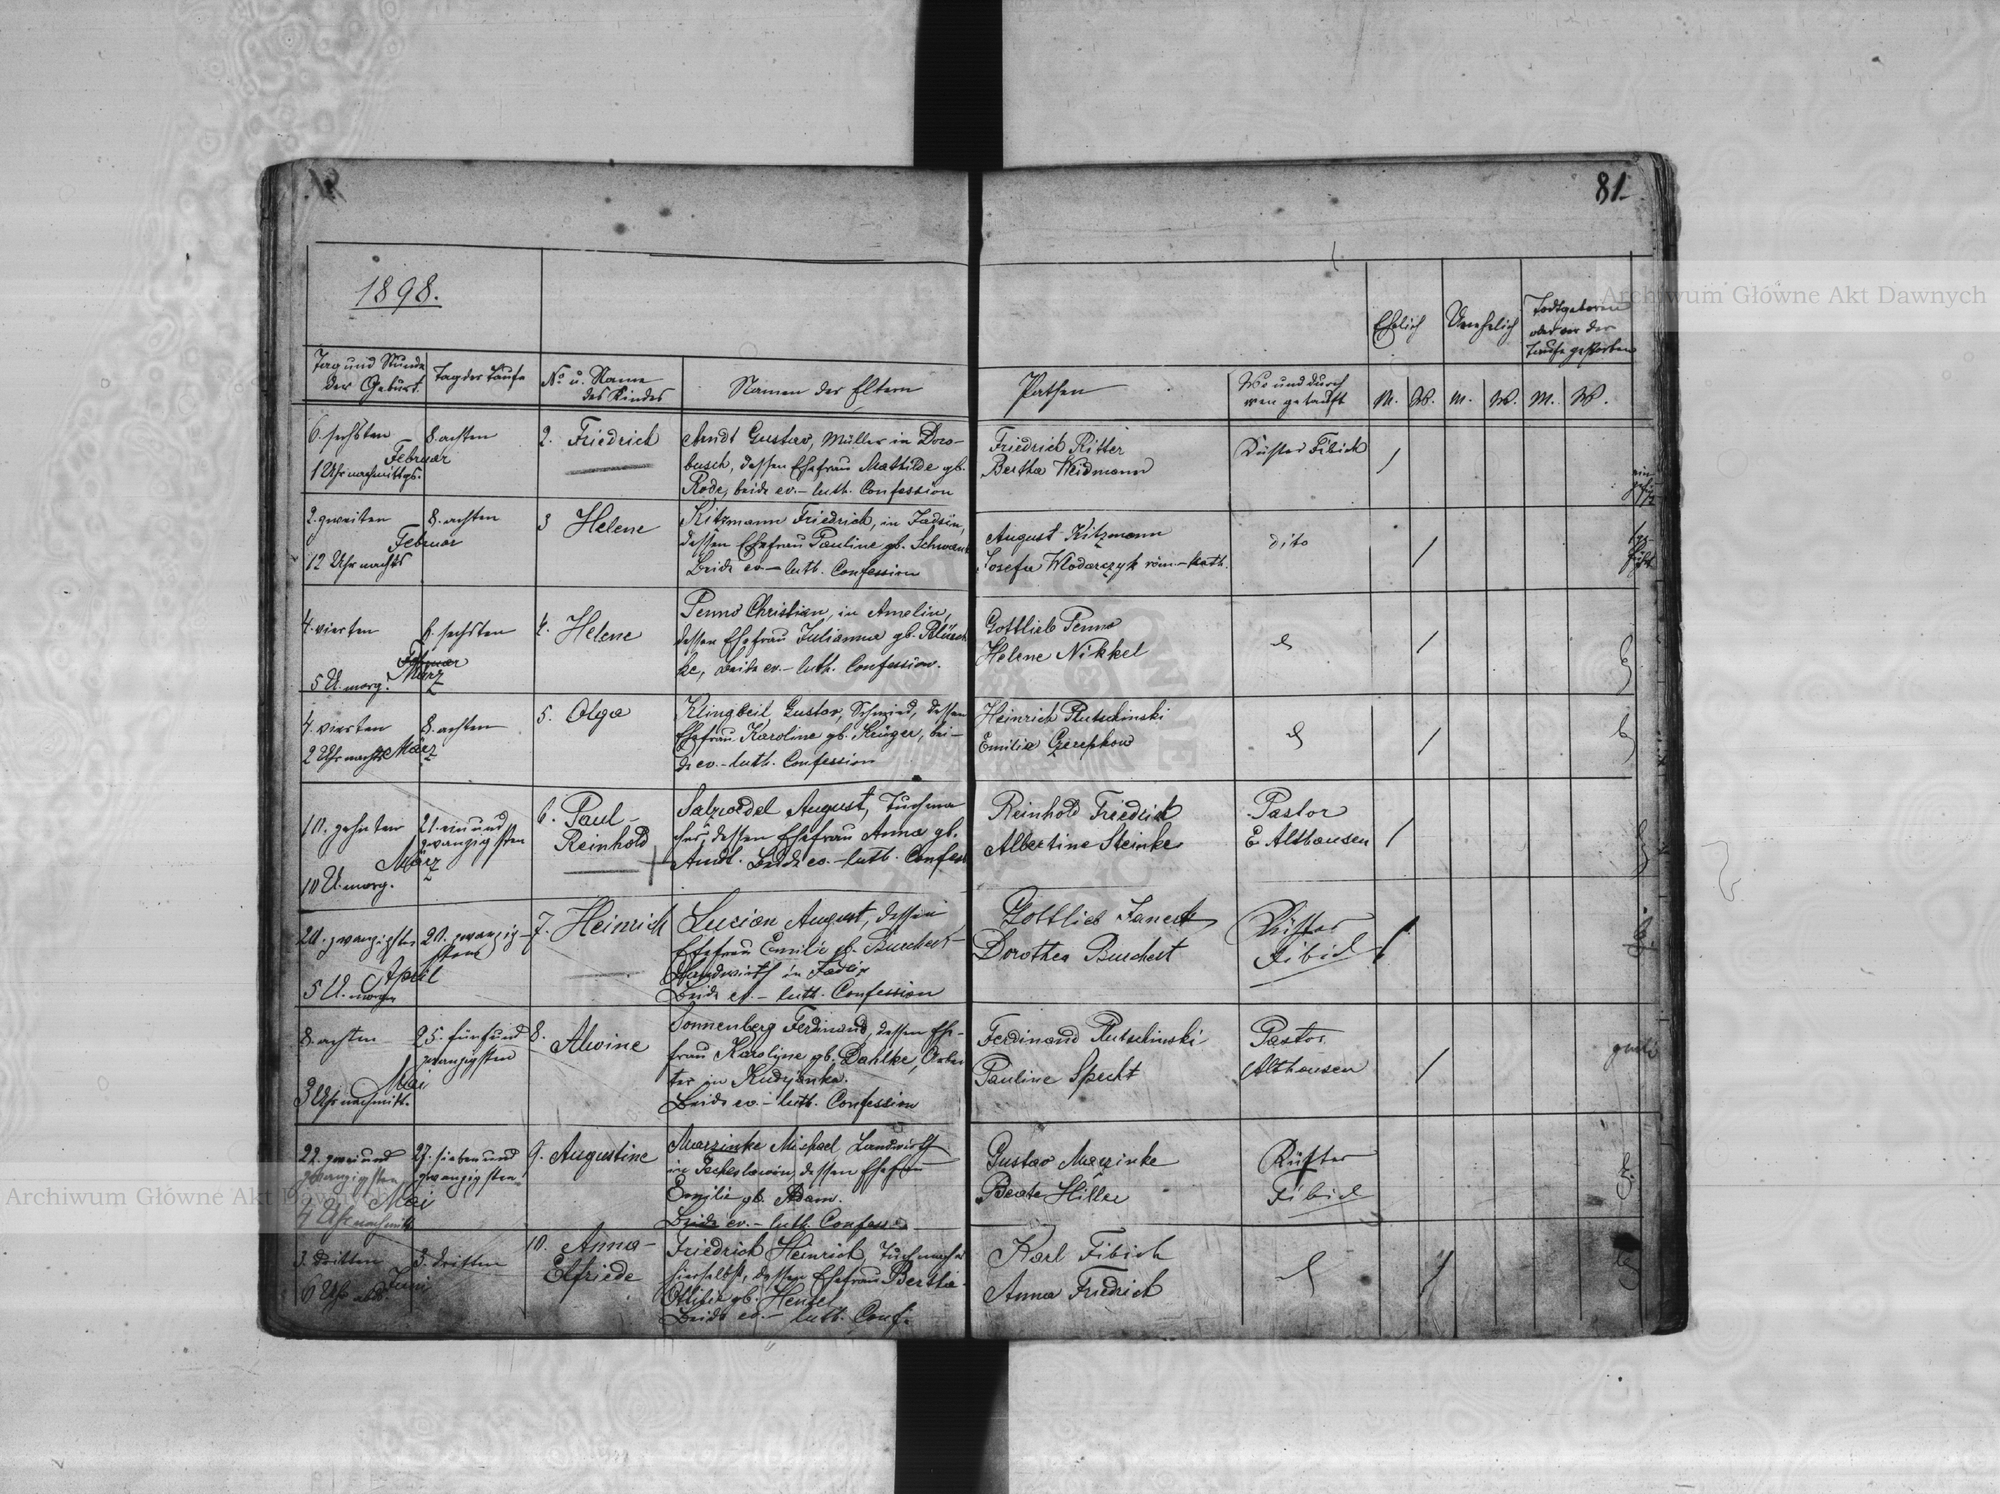 81.
1898.
Ehelich
Unehelich
Todtgeboren
oder vor der
Taufe gestorben
Tag und Stunde
der Geburt.
Tag der Taufe
No u. Name
des Kindes
Namen der Eltern
Pathen
Wo und durch
wen getauft
M. W. M. W. M. W.
6. sechsten
Februar
1 Uhr nachmittgs.
8. achten
2. Friedrich
Arndt Gustav, Müller in Doro-
busch, dessen Ehefrau Mathilde gb.
Rode, beide ev.-luth. Confession
Friedrich Ritter
Bertha Weidmann
Küster Fibich
2. zweiten
Februar
12 Uhr nachts
8. achten
3 Helene
Kitzmann Friedrich, in Jadsin,
dessen Ehefrau Pauline gb. Schwanz
Beide ev.-luth. Confession
August Kitzmann
Josefa Wlodarczyk röm.-kath.
dito
4. vierten
Februar
März
5 U. morg.
6. sechsten
4. Helene
Penno Christian, in Amelin,
dessen Ehefrau Julianna gb. Blüsch
ke, beide ev.-luth. Confession.
Gottlieb Penno
Helene Nikkel
4. vierten
März
2 Uhr nachts
8. achten
5. Olga
Klingbeil Gustav, Schmied, dessen
Ehefrau Karoline gb. Krüger, bei-
de ev.-luth. Confession
Heinrich Rutschinski
Emilie
10. zehnten
März
10 U. morg.
21. ein und
zwanzigsten
6. Paul-
Reinhold
Salzwedel August, Tuchma
cher, dessen Ehefrau Anna gb.
Arndt. Beide ev.-luth. Confess
Reinhold Friedrich
Albertine Steinke
Pastor
E. Althausen
20. zwanzigsten
April
5 U. morg.
20. zwanzig-
sten
7. Heinrich
Lucian August, dessen
Ehefrau Emilie gb. Buchert
Landwirth in
Beide ev.-luth. Confession
Gottlieb
Dorothea Buchert
Küster
Fibich
8. achten
Mai
3 Uhr nachmitt.
25. fünfund
zwanzigsten
8. Alwine
Sonnenberg Ferdinand, dessen Ehe-
frau Karoline gb. Dahlke, Arbei
ter in Kudyanka.
Beide ev.-luth. Confession
Ferdinand Rutschinski
Pauline Specht
Pastor
Althausen
22. zwei und
zwanzigsten
Mai
4 Uhr nachmitt.
27. sieben und
zwanzigsten
9. Augustine
Marzinke Michael Landwirth
in dessen Ehefrau
Emilie gb. Adam.
Beide ev.-luth. Confess.
Gustav Marzinke
Beate Hiller
Küster
Fibich
3. dritten
Juni
6 Uhr abd.
3. dritten
10. Anna-
Elfriede
Friedrich Heinrich, Tuchmacher
hierselbst, dessen Ehefrau Bertha
Ottilie gb. Hensel
Beide ev.-luth. Conf.
Karl Fibich
Anna Friedrich
Archiwum Główne Akt Dawnych
Archiwum Główne Akt Dawnych